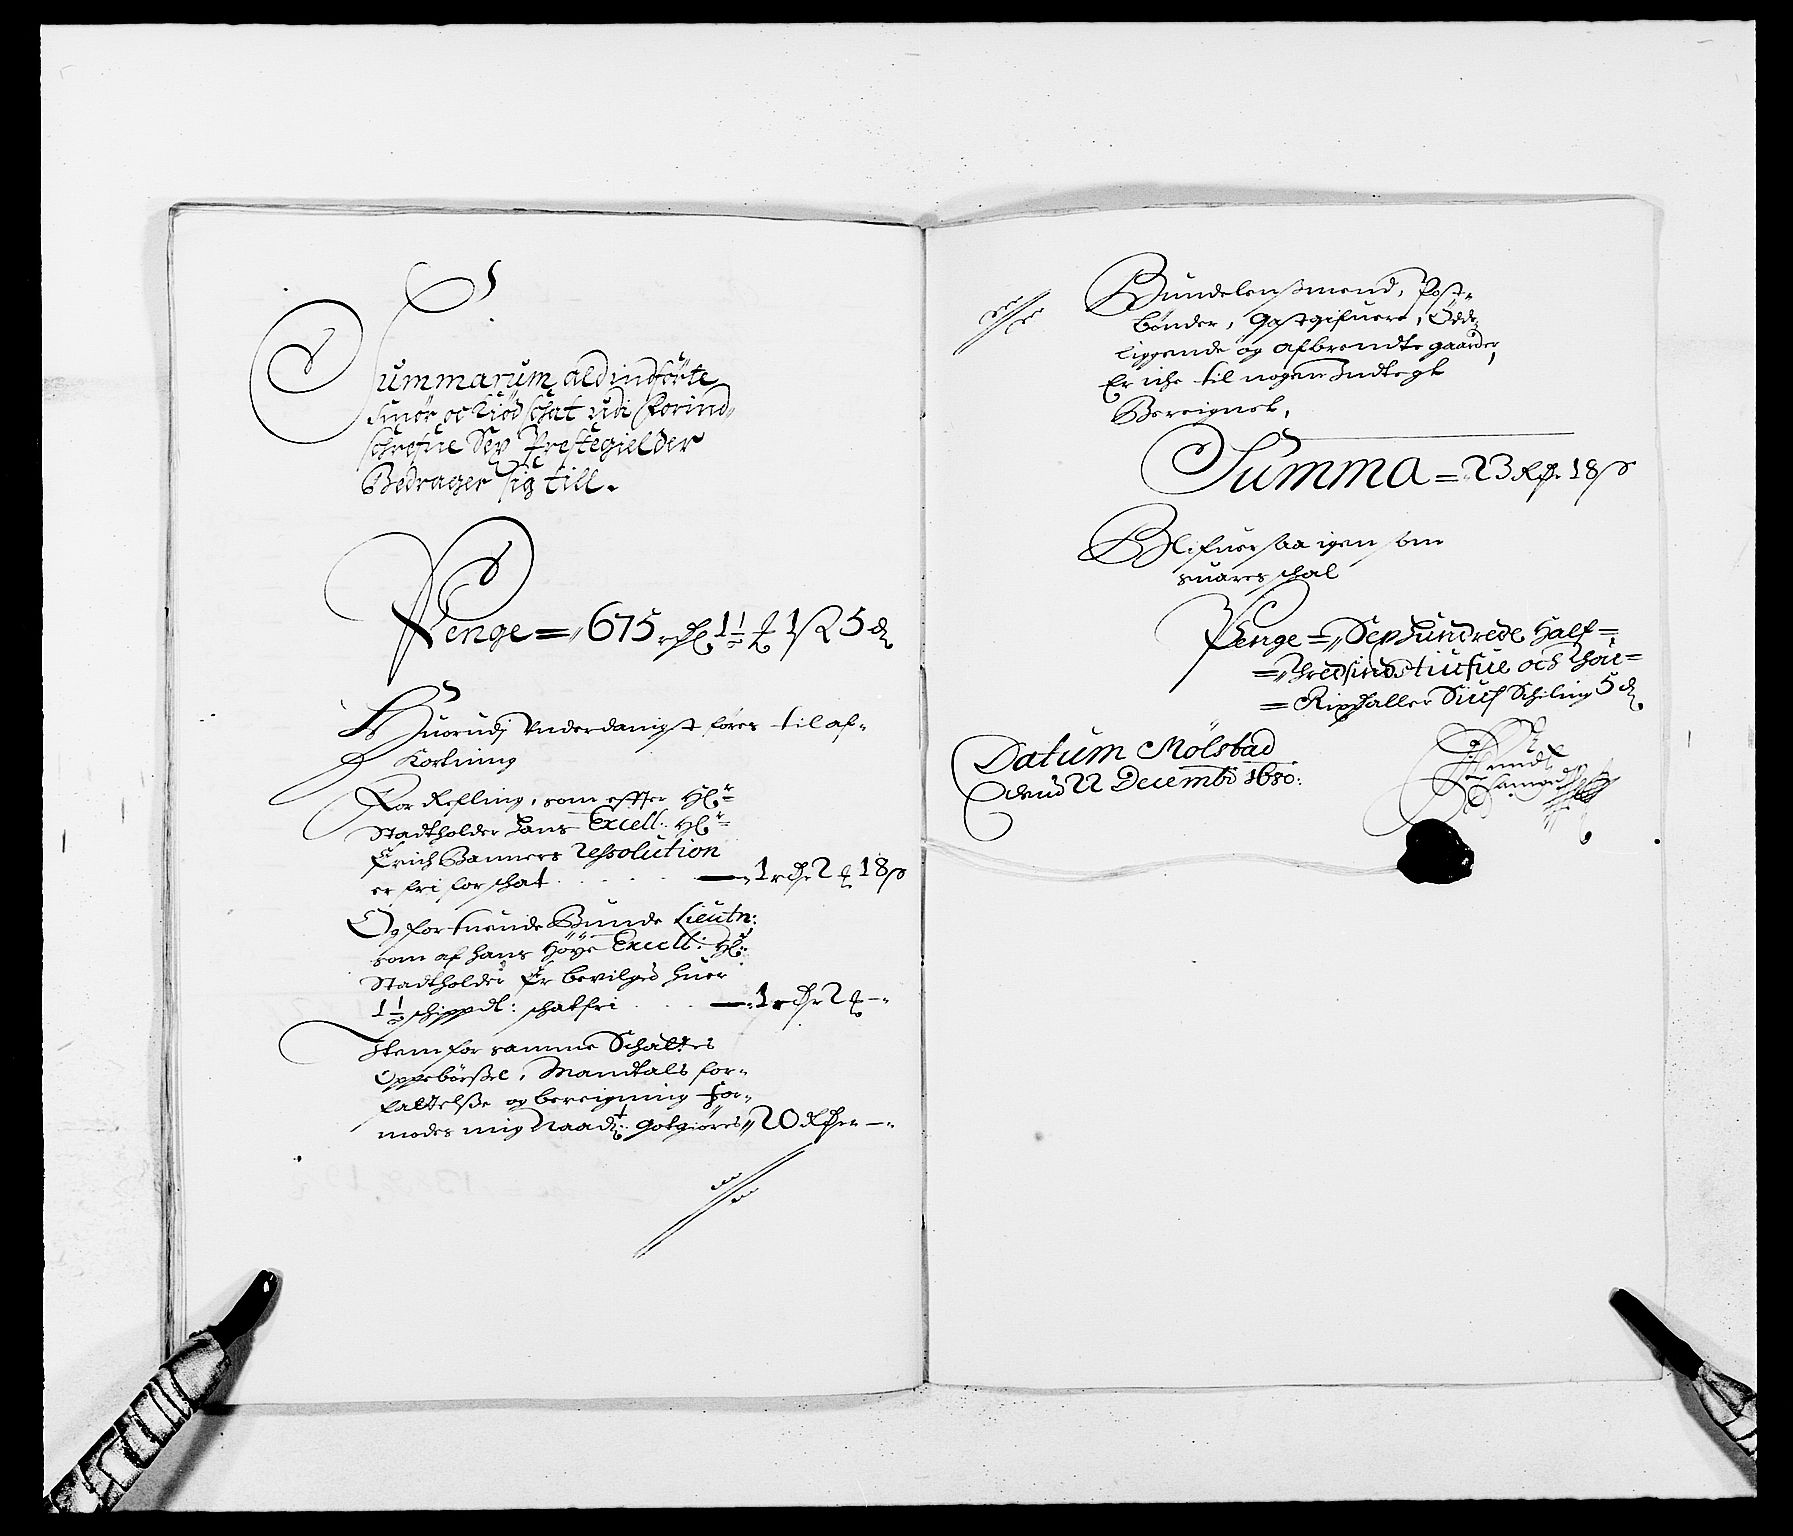 Summarum ald indförte
smör oc Kiöd schat udi forind-
schrefne Sex Prestegielder
Bedrager sig till.
Penge = 675 rdr 1½ ₰ 1 s 5 d
Huorudj Underdanigst föres til af-
Kortning
For Refling, som effter Hr:
Stadtholder Hans Excell: Hr:
Erich Banners ressolution
er fri for schat — 1 rdr 2 ₰ 18 s
Og for tuende Bunde Lieutn:
som af hans Höye Excell: Hr:
Stadtholder Er bevilged huer
1½ schippd: schatfri — 1 rdr 2 ₰ —
Item for samme Schattes
Oppebörßel, Mandtals for-
fattelße og bereigning for-
modes mig Naadt: Gotgiöres 20 Rdr —
Bundelenßmend, Post-
bönder, Gastgifuere, Öde-
liggende og afbrendte gaarder,
Er iche til nogen Indtegt
Bereignet,
Summa = 23 Rdr 18 s
Blifuer saa igen som
suares schal
Penge = Sexhundrede Half-
= Tredsinds tiufue och Thou-
= Rixdaller Siuf Schiling 5 d
Datum Mölstad
dend 22 Decembr 1680: